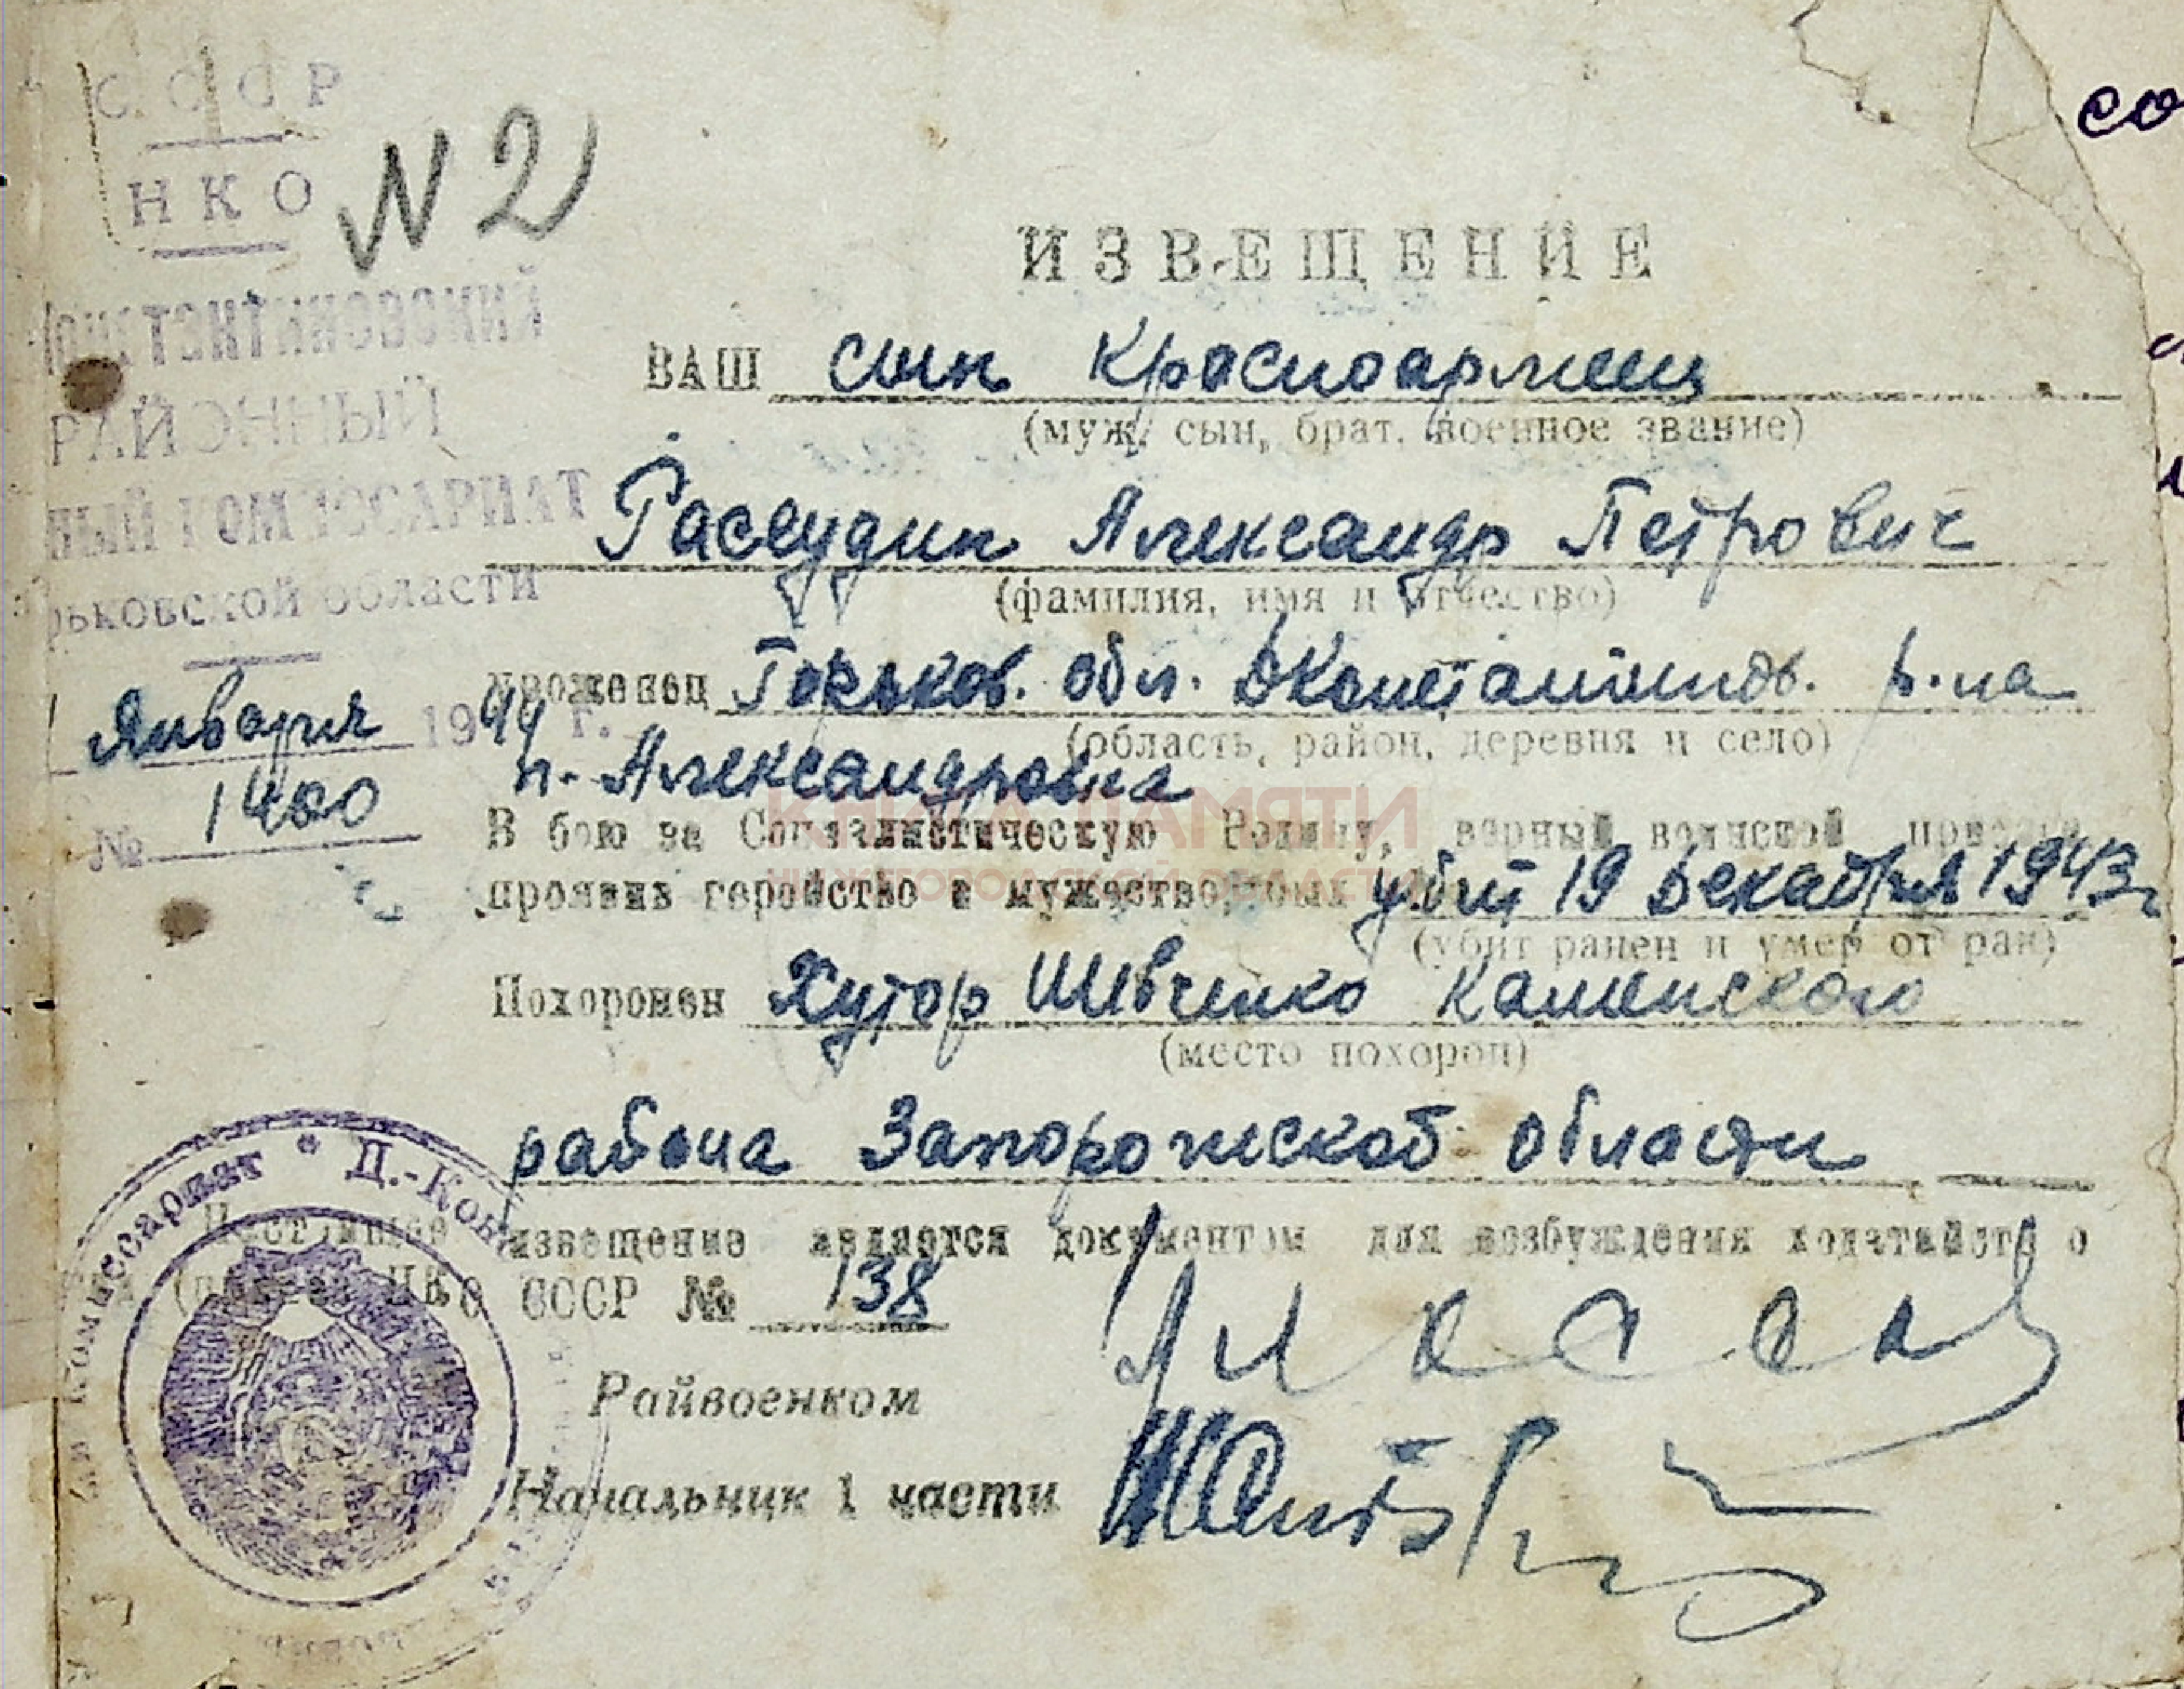 СССР
НКО
N2
РАЙОННЫЙ
КОМИССАРИАТ
области
Января 1944 г.
№ 1400
ИЗВЕЩЕНИЕ
ВАШ сын красноармеец
(муж, сын, брат, военное звание)
Рассудин Александр Петрович
(фамилия, имя и отчество)
уроженец Горьков. обл. ДКонстантинов. р-на
(область, район, деревня и село)
п. Александровка
В бою за Социалистическую Родину, верный воинской
проявив геройство и мужество, был убит 19 декабря 1943г
(убит ранен и умер от ран)
Похоронен Хутор Шевченко Каменского
(место похорон)
района Запорожской области
Настоящее извещение является документом для возбуждения ходатайств о
НКО СССР № 138
Райвоенком
Начальник 1 части
комиссариат * Д.-Кон
КНИГА ПАМЯТИ
НИЖЕГОРОДСКОЙ ОБЛАСТИ
со